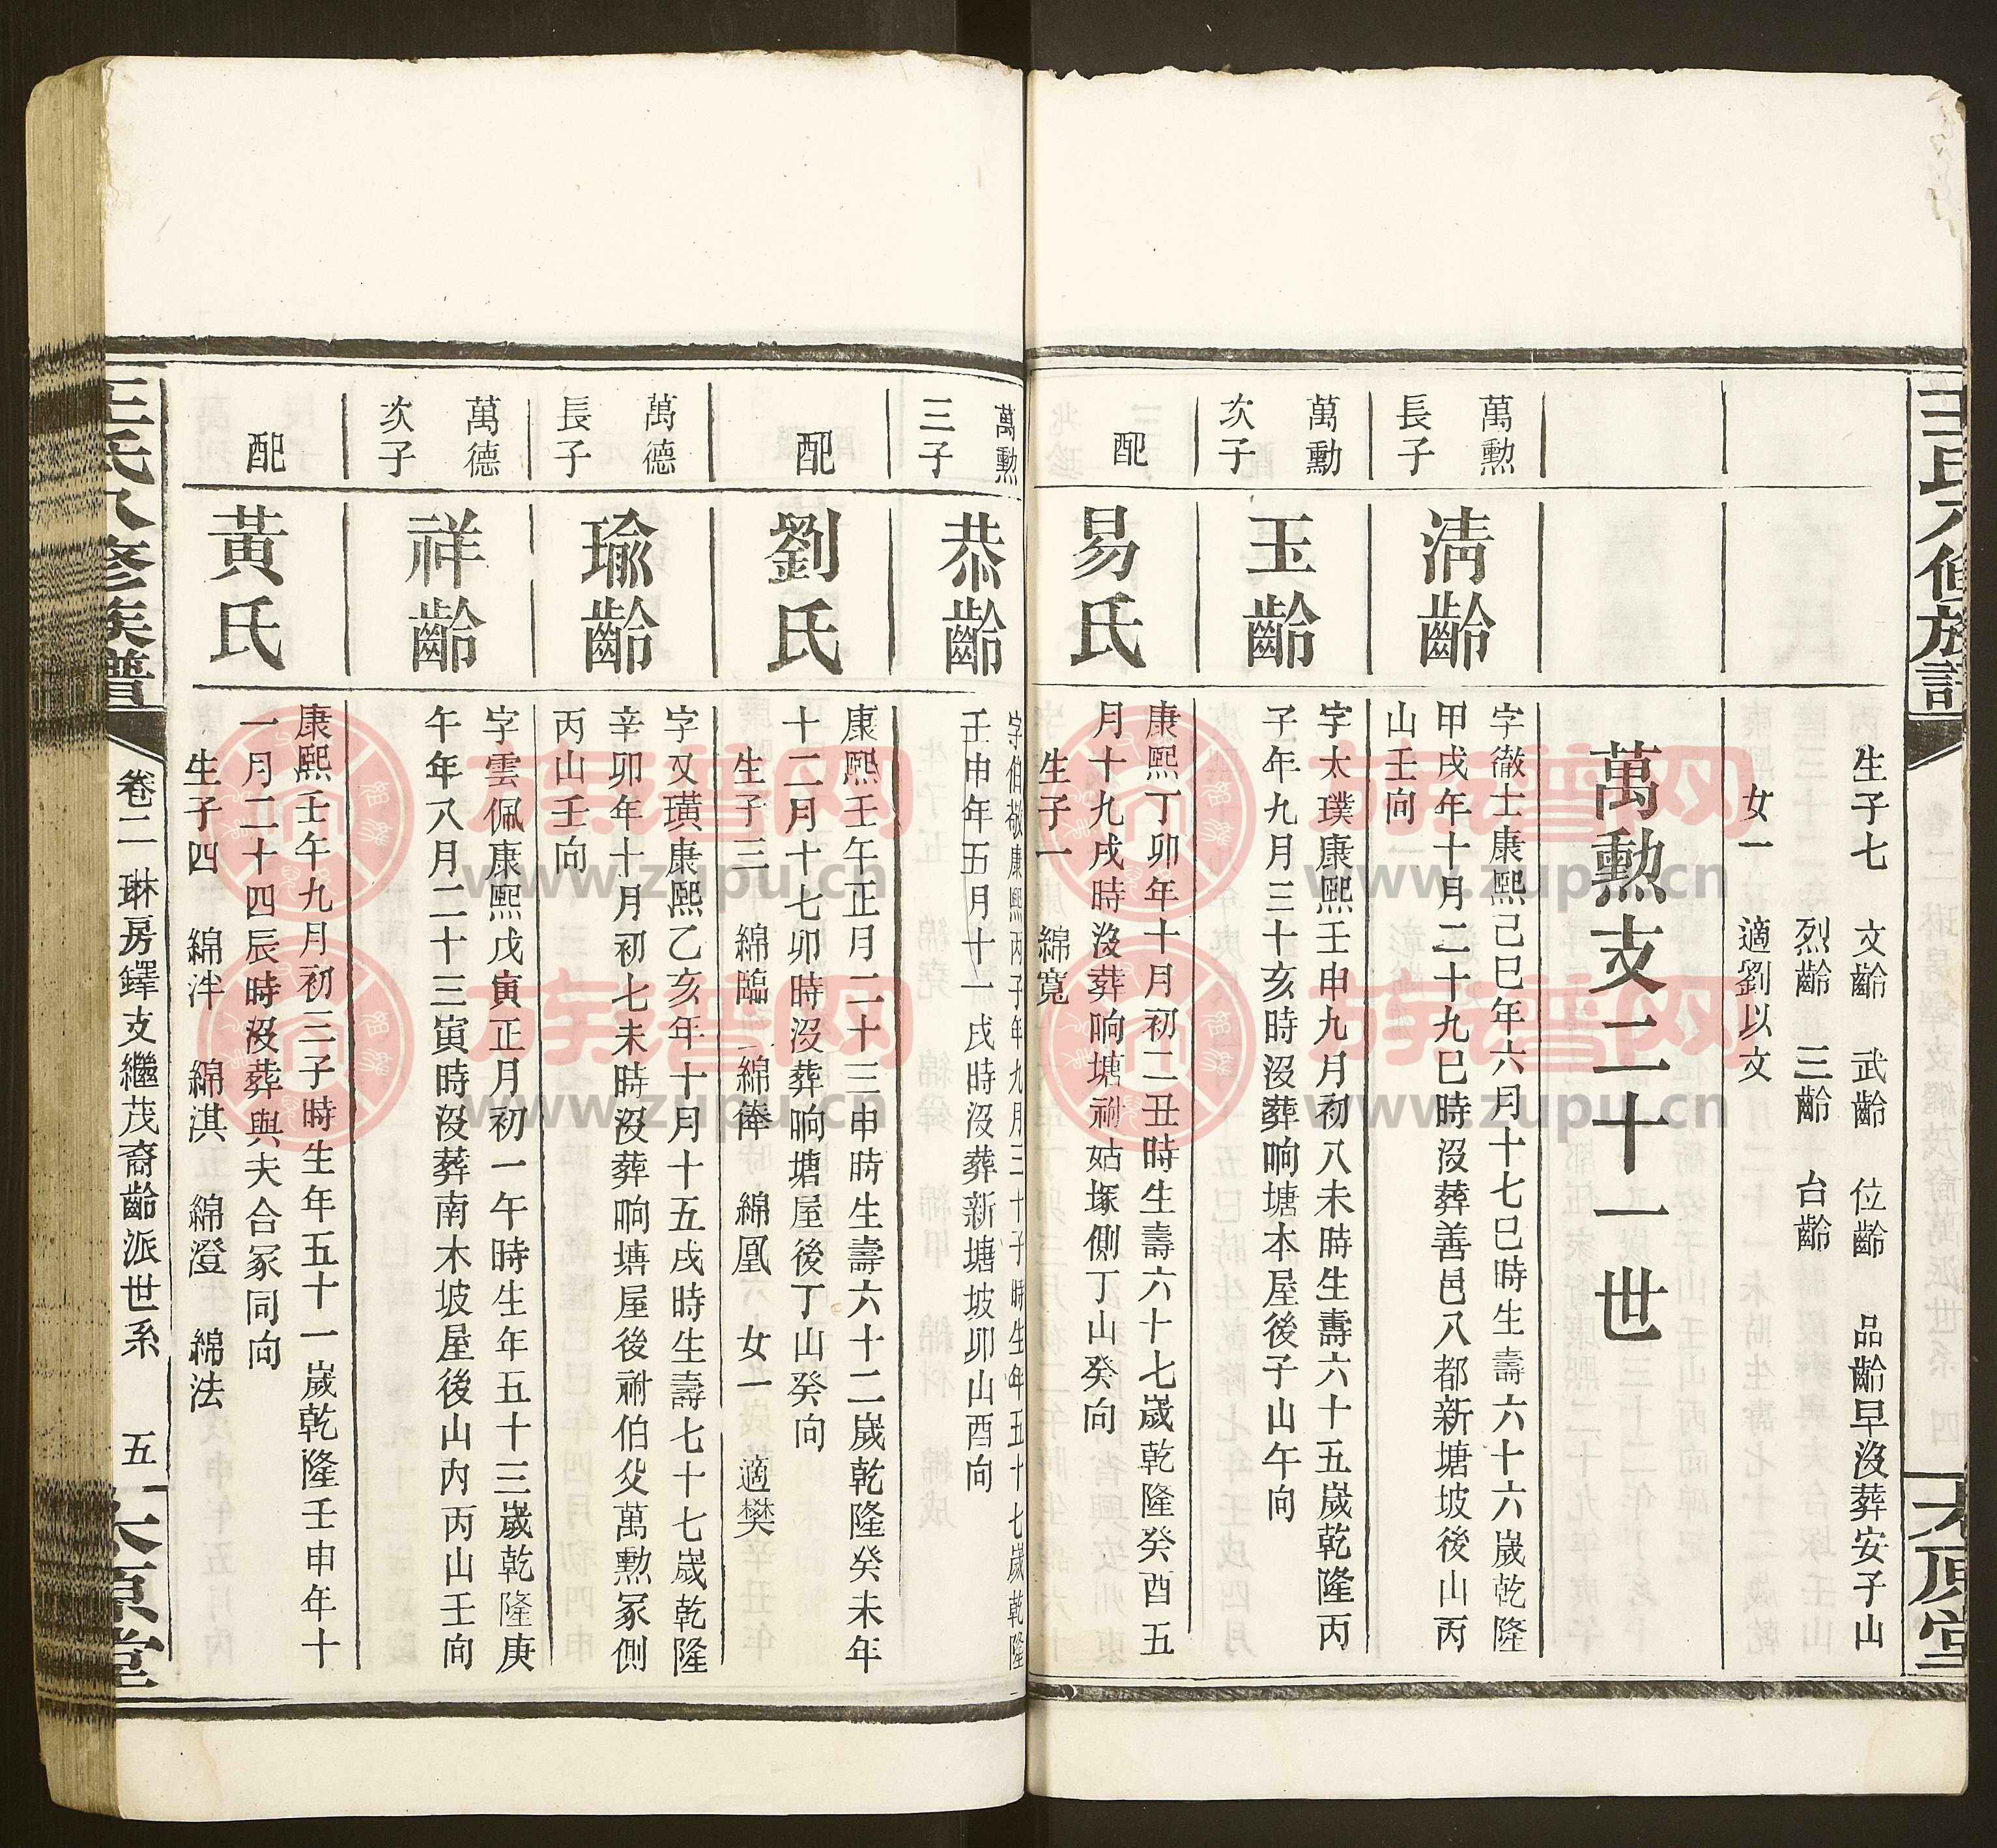 王氏八修族譜
太原堂
生子七 文齡 武齡 位齡 品齡早沒葬安子山
烈齡 三齡 台齡
女一 適劉以文
萬勲支二十一世
萬勲
長子
淸齡
字徹士康熙己巳年六月十七巳時生壽六十六歲乾隆
甲戌年十月二十九巳時沒葬善邑八都新塘坡後山丙
山壬向
萬勳
次子
玉齡
字太璞康熙壬申九月初八未時生壽六十五歲乾隆丙
子年九月三十亥時沒葬响塘本屋後子山午向
配
易氏
康熙丁卯年十月初二丑時生壽六十七歲乾隆癸酉五
月十九戌時沒葬响塘祔姑塚側丁山癸向
生子一 綿寬
萬勲
三子
恭齡
字伯敬康熙丙子年九月三十子時生年五十七歲乾隆
壬申年五月十一戌時沒葬新塘坡卯山酉向
配
劉氏
康熙壬午正月二十三申時生壽六十二歲乾隆癸未年
十二月十七卯時沒葬响塘屋後丁山癸向
生子三 綿臨 綿俸 綿凰 女一 適樊
萬德
長子
瑜齡
字又璜康熙乙亥年十月十五戌時生壽七十七歲乾隆
辛卯年十月初七未時沒葬响塘屋後祔伯父萬勲冢側
丙山壬向
萬德
次子
祥齡
字雲佩康熙戊寅正月初一午時生年五十三歲乾隆庚
午年八月二十三寅時沒葬南木坡屋後山內丙山壬向
配
黃氏
康熙壬午九月初三子時生年五十一歲乾隆壬申年十
一月二十四辰時沒葬與夫合冢同向
生子四 綿泮 綿淇 綿澄 綿法
王氏八修族譜
卷二 琳房鐸支繼茂裔齡派世系 五
太原堂
族譜网
www.zupu.cn
族譜网
www.zupu.cn
族譜网
www.zupu.cn
族譜网
www.zupu.cn